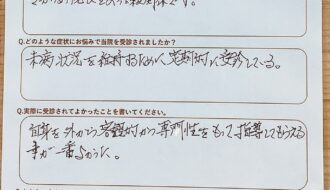 Q.どのような症状にお悩みで当院を受診されましたか?
未病状況を維持するために定期的に受診している。
Q.実際に受診されてよかったことを書いてください。
自身を外から客観的かつ専門性をもって指導してもらえる
事が一番よかった。